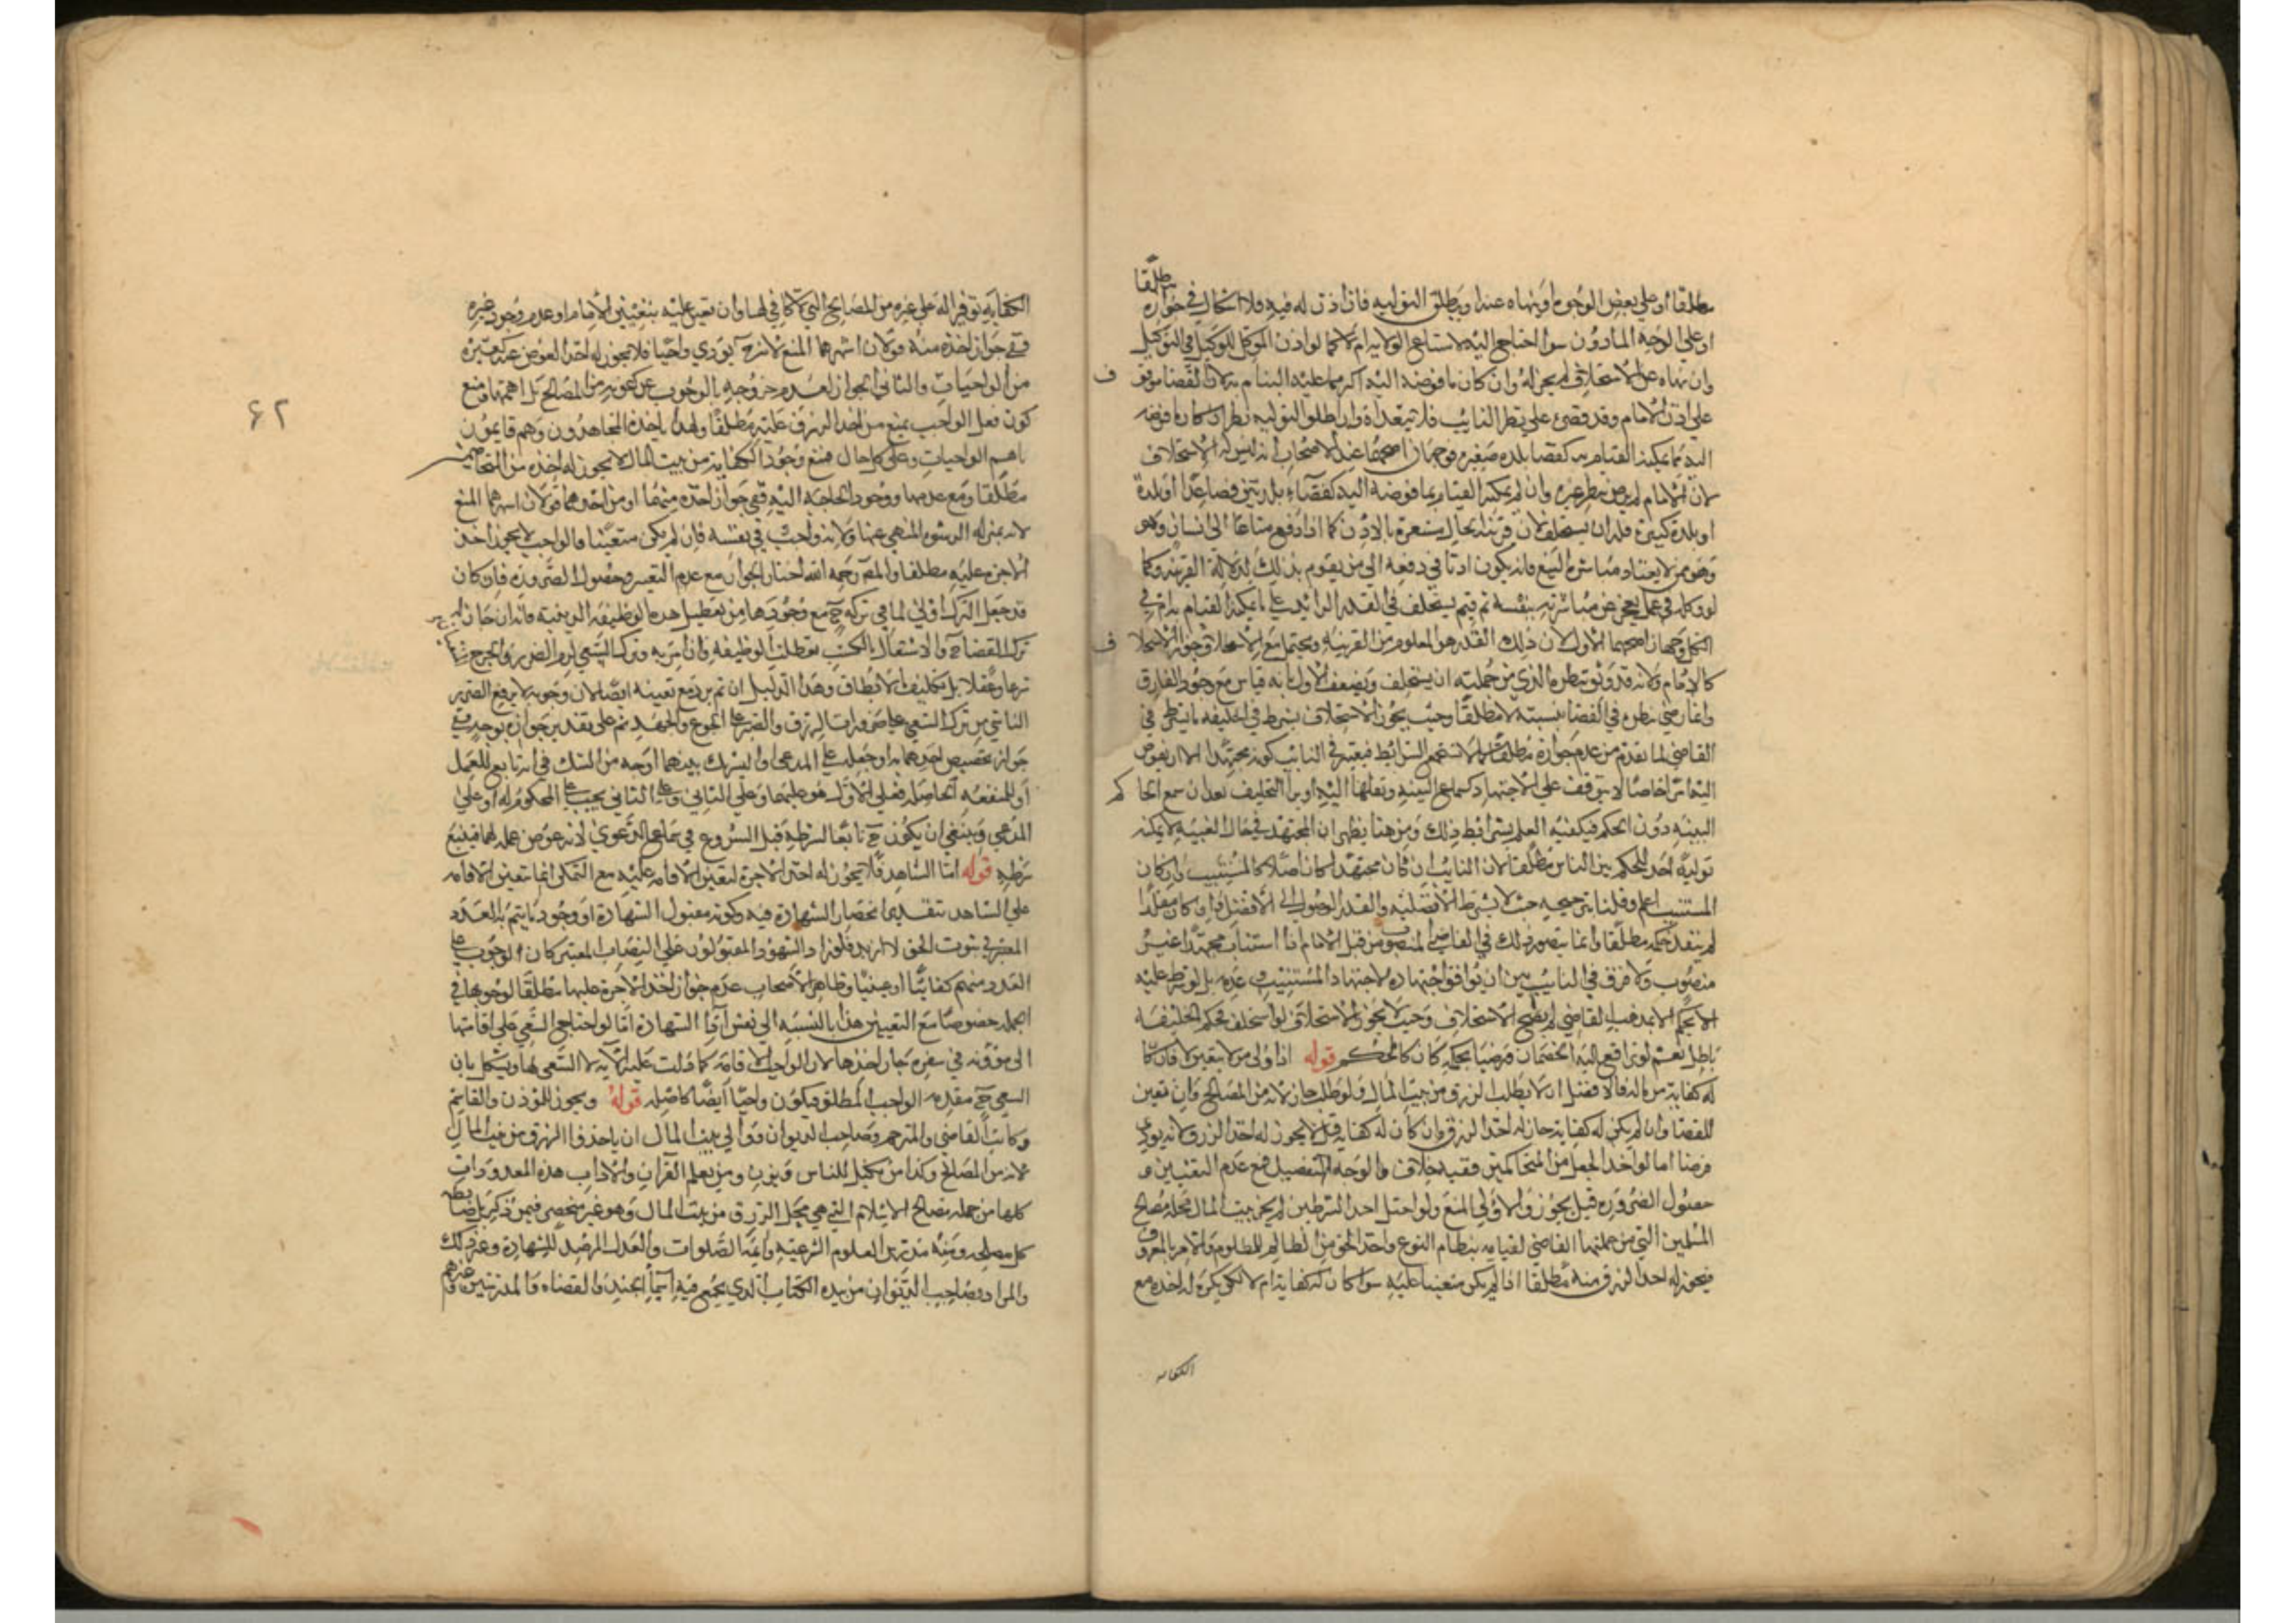 مطلقا او علي بعض الوجوه او ينهاه عنه او يطلق التوليه فان اذن له فيه فلا اشكال في جوازه مطلقا
او علي الوجه الماذون سوا احتاج اليه لاتساع الولاية ام لا كما لو اذن الموكل للوكيل في التوكيل
وان نهاه عن الاستخلاف لم يجز له وان كان ما فوضه اليه اكثر مما عليه القيام به لان القضا موقوف
علي اذن الامام وقد قصره علي نظر النايب فلا يتعداه وان اطلق التوليه نظر ان كان ما فوضه
اليه مما يمكنه القيام به كقضا بلده صغيره فوجهان اصحهما عند الاصحاب انه ليس له الاستخلاف
لان الامام لم يرض بنظر غيره وان لم يمكنه القيام بما فوضه اليه كقضاء بلدتين فصاعدا او بلدة
او بلدة كبيرة فله ان يستخلف لان قرينة الحال مشعرة بالاذن كما اذا دفع متاعا الى انسان وهو
وهو ممن لا يعتاد مباشرة البيع فانه يكون اذنا في دفعه الي من يقوم بذلك لدلالة القرينه وكما
لو وكله في عمل يعجز عن مباشرته بنفسه ثم يستخلف في القدر الزائد علي ما يمكنه القيام به ام في
الكل وجهان اصحهما الاول لان ذلك القدر هو المعلوم من القرينه ويحتمل مع الاطلاق جواز الاستخلاف
كالامام ولانه قد وثق بنظره الذي من جملته ان يستخلف ويضعف الاول بانه قياس مع وجود الفارق
وانما رضي بنظره في القضا بنفسه لا مطلقا وحيث يجوز الاستخلاف يشترط في الخليفه ما يشترط في
القاضي لما تقدم من عدم جوازه مطلقا لمن لا يستجمع الشرايط فيعتبر في النايب كونه مجتهدا الا ان يفوض
اليه امرا خاصا لا يتوقف علي الاجتهاد كسماع البينه ونقلها اليه او في التحليف بعد ان سمع الحاكم
البينه دون الحكم فيكفيه العلم بشرايط ذلك ومن هنا يظهر ان المجتهد في حال الغيبه لا يمكنه
توليه احد للحكم بين الناس مطلقا لان النايب ان كان مجتهدا كان اصلا كالمستنيب وان كان
المستنيب اعلم وقلنا بترجيحه حيث لا يشترط الافضليه والقدر الوصول الى الافضل وان كان مقلدا
لم ينفذ حكمه مطلقا وانما يتصور ذلك في القاضي المنصوب من قبل الامام اذا استناب مجتهدا غير
منصوب ولا فرق في النايب بين ان يوافق اجتهاده لاجتهاد المستنيب وعدمه بل لو شرط عليه
الا يحكم الا بمذهب القاضي لم يصح الاستخلاف وحيث لا يجوز الاستخلاف لو استخلف فحكم الخليفه
باطل نعم لو ترافع اليه الخصمان فرضيا بحكمه كان كالمحكم قوله اذا ولى من لا يتعين لا فان كان
له كفاية من ماله فالافضل ان لا يطلب الرزق من بيت المال ولو طلب جاز لانه من المصالح وان تعين
للقضا وان لم يكن له كفاية جاز له اخذ الرزق وان كان له كفاية قيل لا يجوز له اخذ الرزق لانه يودي
فرضا اما لو اخذ الجعل من المتحاكمين ففيه خلاف والوجه التفصيل فمع عدم التعيين و
حصول الضرورة قيل يجوز والاولى المنع ولو اختل احد الشرطين لم يجز بيت المال محله مصالح
المسلمين التي من جملتها القاضي لقيامه بنظام النوع واخذ الحق من الظالم للمظلوم والامر بالمعروف
فيجوز له اخذ الرزق منه مطلقا اذا لم يكن متعينا عليه سوا كان له كفاية ام لا لكن يكره له اخذه مع
الكفايه
الكفايه توفيرا له علي غيره من المصالح التي لا كافي لها وان تعين عليه بتعيين الامام او عدم وجود غيره
ففي جواز اخذه منه قولان اشهرهما المنع لانه ح يودي واجبا فلا يجوز له اخذ العوض عنه كغيره
من الواجبات والثاني الجواز لعدم خروجه بالوجوب عن كونه من المصالح بل اهمها ومنع
كون فعل الواجب يمنع من اخذ الرزق عليه مطلقا ولهذا ياخذه المجاهدون وهم قايمون
باهم الواجبات وعلي كل حال فمع وجود الكفاية من بيت المال لا يجوز له اخذه من المتخاصمين
مطلقا ومع عدمها ووجود الحاجه اليه ففي جواز اخذه منهما او من احدهما قولان اشهرهما المنع
لانه بمنزله الرشوه المنهي عنها ولانه واجب في نفسه فان لم يكن متعينا فالواجب لا يجوز اخذ
الاجرة عليه مطلقا والمص رحمه الله اختار الجواز مع عدم التعين وحصول الضرورة فان كان
قد جعل الترك اولي لما في تركه ح مع وجودها من تعطيل هذه الوظيفه الدينيه فانه ان جاز له
ترك القضا ح والاشتغال بالتكسب تعطلت الوظيفه وان امر به وترك السعي لزم الضرر والحرج
شرعا وعقلا بل تكليف ما لا يطاق وهذا الدليل ان تم يرد مع تعينه ايضا لان وجوبه لا يرفع الضرر
الناشي من ترك السعي علي ضرورات الرزق والصبر علي الجوع والجهد ثم علي تقدير جوازه يوجد في
جواز تخصيص احدهما به او جعله علي المدعى او التشريك بينهما اوجه من الشك في انه تابع للعمل
او للمنفعه الحاصله فعلي الاول هو عليهما وعلي الثاني وعلي الثاني يجب علي المحكوم له او علي
المدعي وينبغي ان يكون ح تابعا لشرطه قبل الشروع في سماع الدعوي لانه عوض عن عمله لهما فيتبع
شرطه قوله اما الشاهد فلا يجوز له اخذ الاجرة لتعين الاقامه عليه مع التمكن انما تتعين الاقامه
علي الشاهد بتقدير انحصار الشهادة فيه وكونه مقبول الشهادة او وجود ما يتم به العدد
المعتبر في ثبوت الحق لا ازيد فلو زاد الشهود المقبولون علي النصاب المعتبر كان الوجوب علي
العدد منهم كفائيا او عينيا وظاهر الاصحاب عدم جواز اخذ الاجرة عليها مطلقا لوجوبها في
الجمله خصوصا مع التعيين هذا بالنسبه الي نفس اقامة الشهادة اما لو احتاج السعي علي اقامتها
الى مؤونه في سفره جاز اخذها لان الواجب الاقامه كما دلت عليه الآيه لا السعي لها ويشكل بان
السعي ح مقدمه الواجب المطلق فيكون واجبا ايضا كاصله قوله ويجوز للمؤذن والقاسم
وكاتب القاضي والمترجم وصاحب الديوان ووالي بيت المال ان ياخذوا الرزق من بيت المال
لانه من المصالح وكذا من يكيل للناس ويزن ومن يعلم القرآن والاداب هذه المعدودات
كلها من جمله مصالح الاسلام التي هي محل الرزق من بيت المال وهو غير منحصر فيمن ذكر بل ضابطه
كل مصلحه ومنه مدرس العلوم الشرعيه وايمة الصلوات والعدل المرصد للشهادة وغير ذلك
والمراد بصاحب الديوان من بيده الكتاب الذي يجمع فيه اسماء الجند والقضاه والمدرسين وغيرهم
٦٢